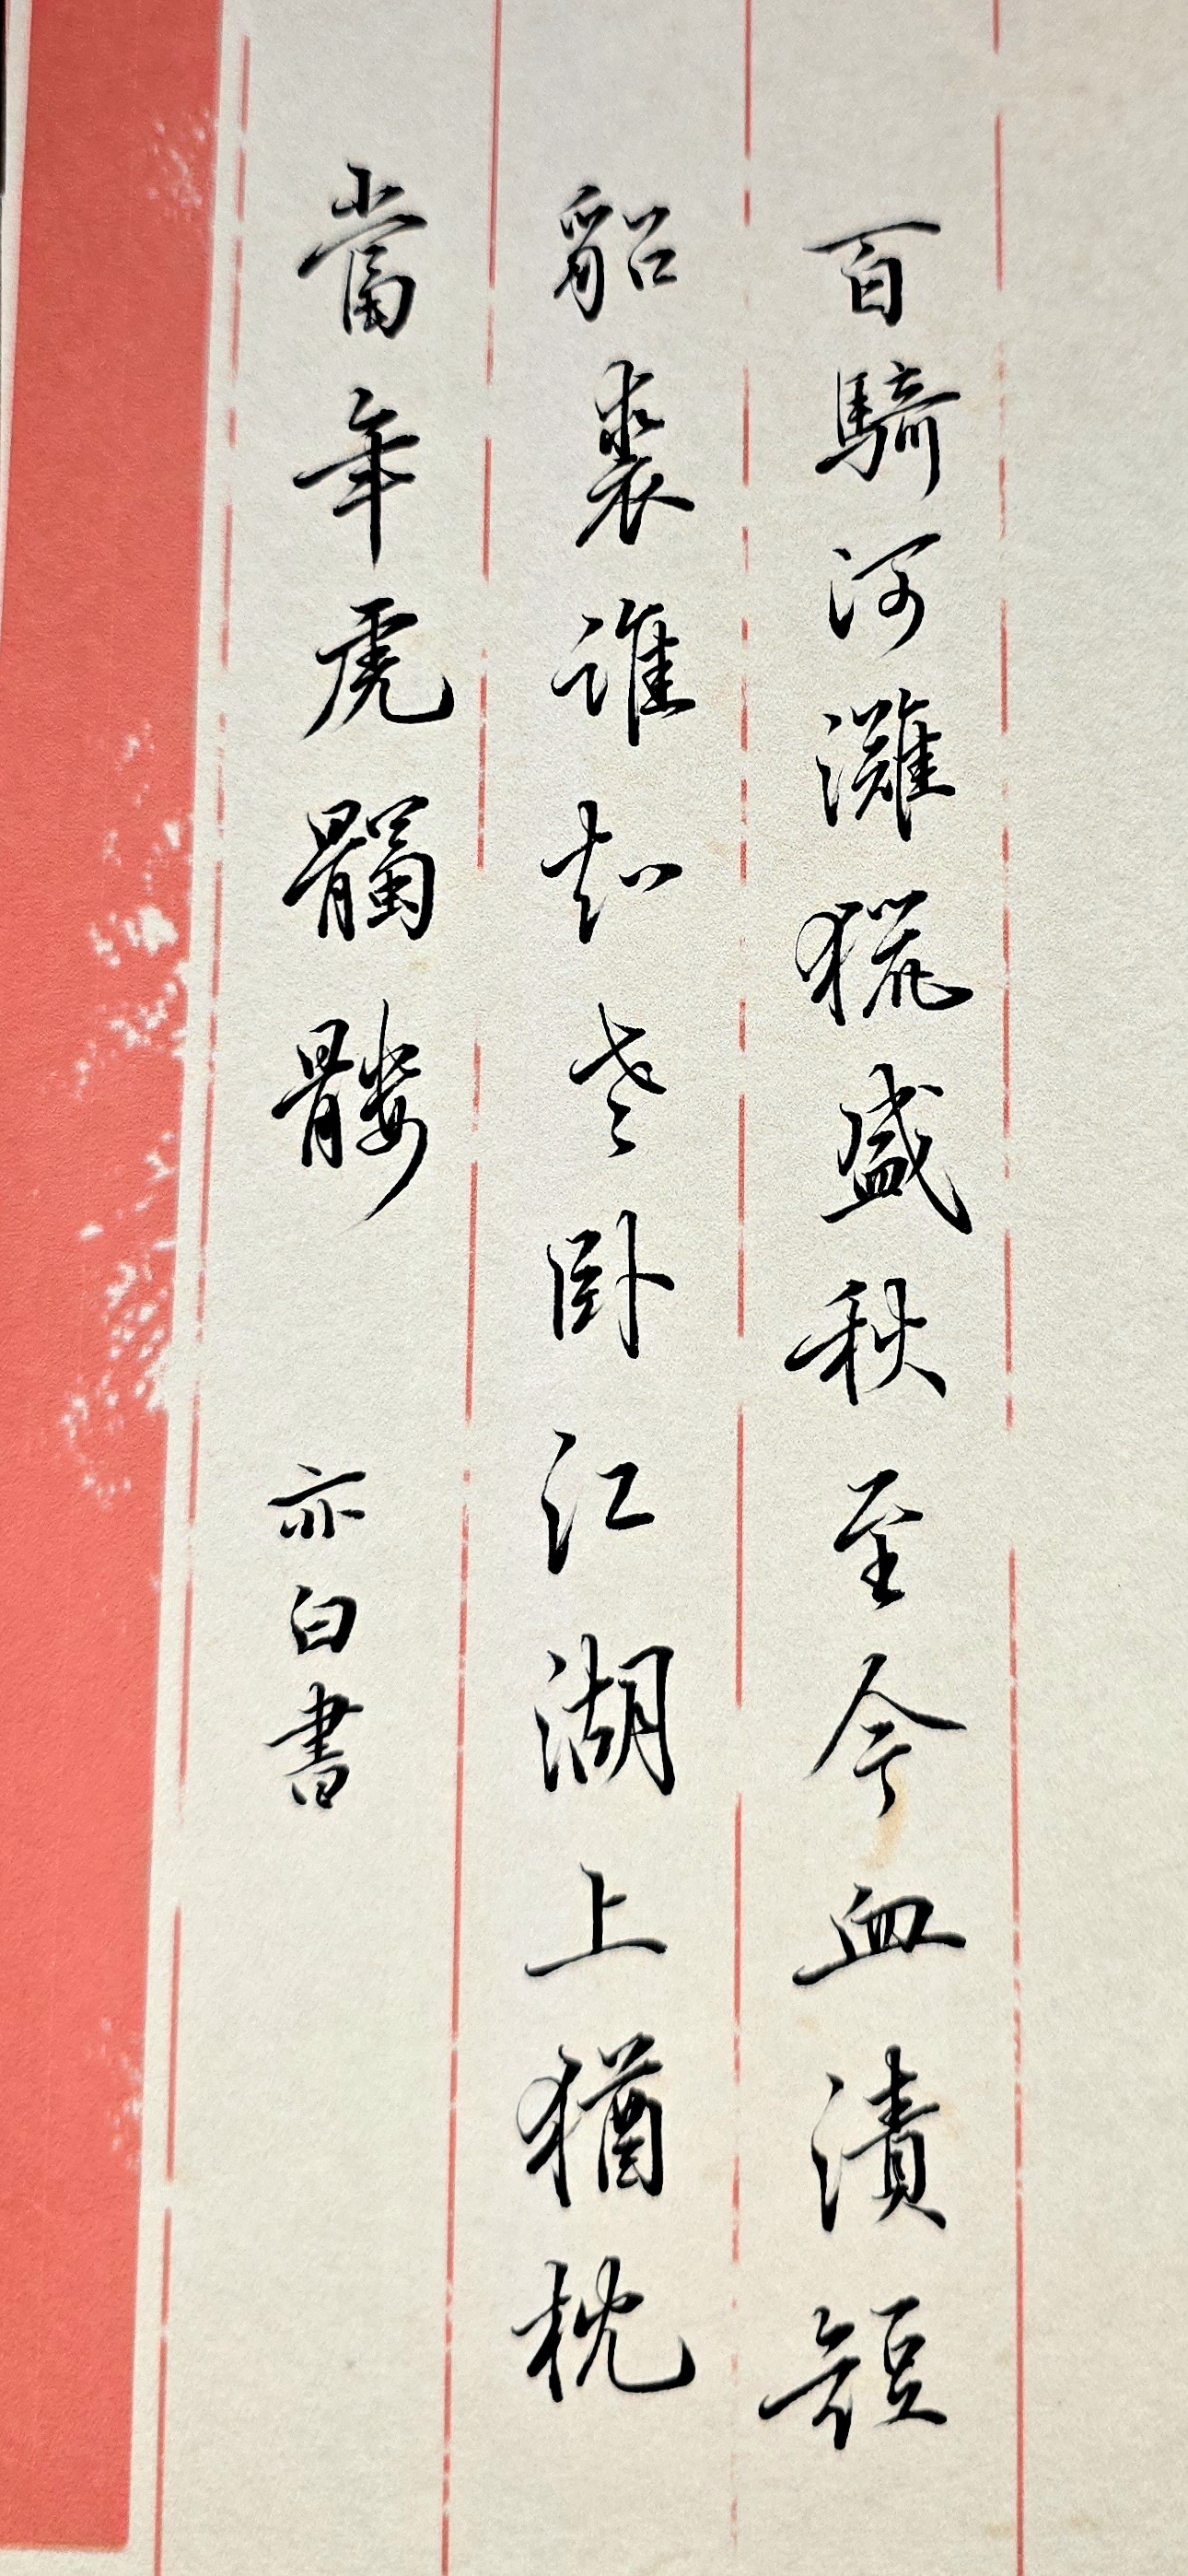 百騎河灘獵盛秋至今血漬短
貂裘誰知老臥江湖上猶枕
當年虎髑髏
亦白書